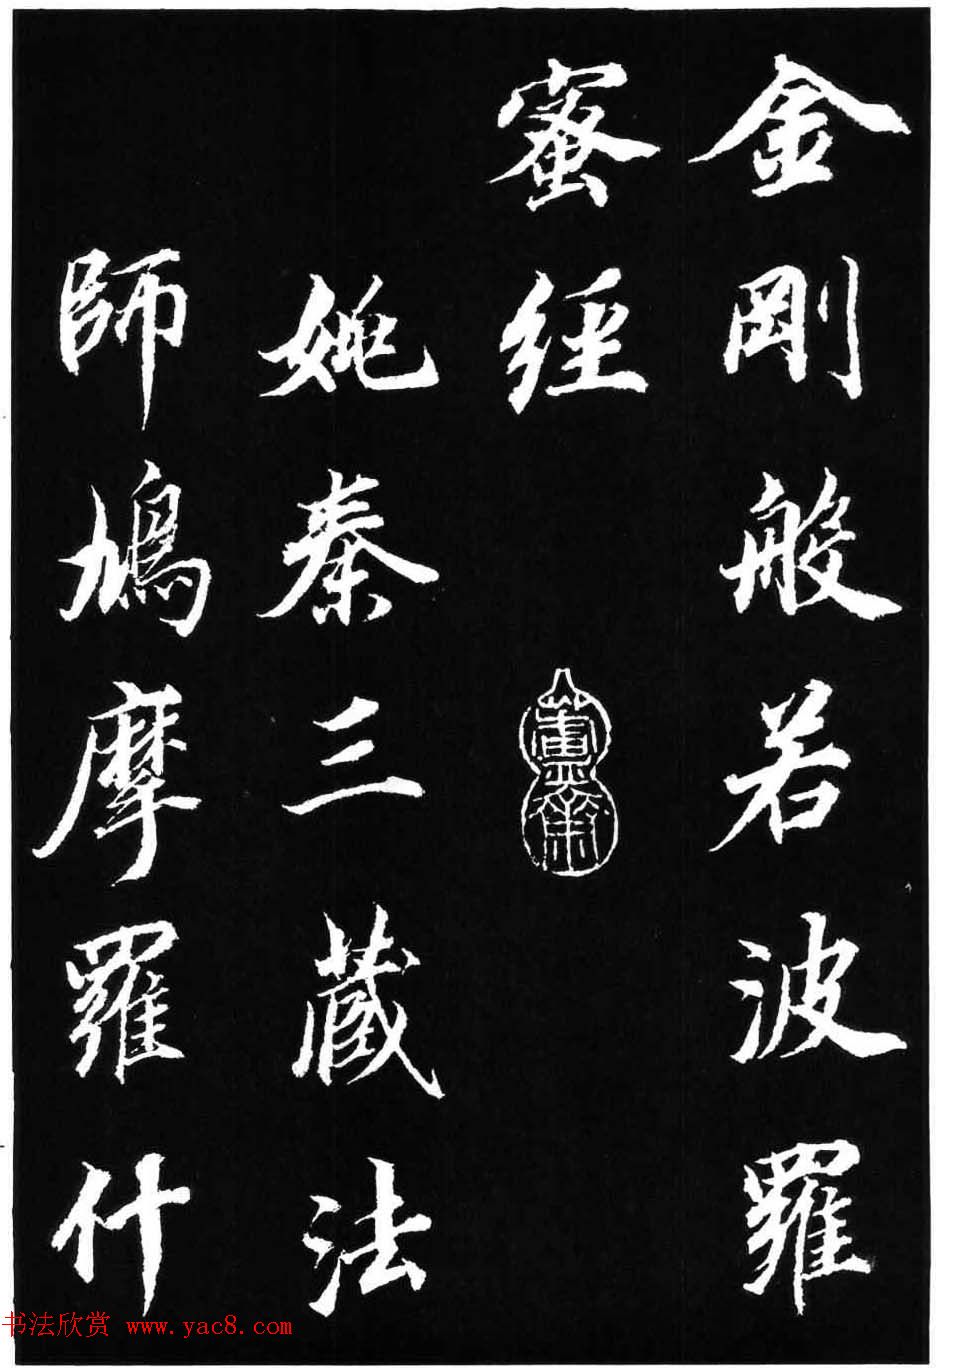 金剛般若波羅
蜜經
姚秦三藏法
師鳩摩羅什
书法欣赏 www.yac8.com